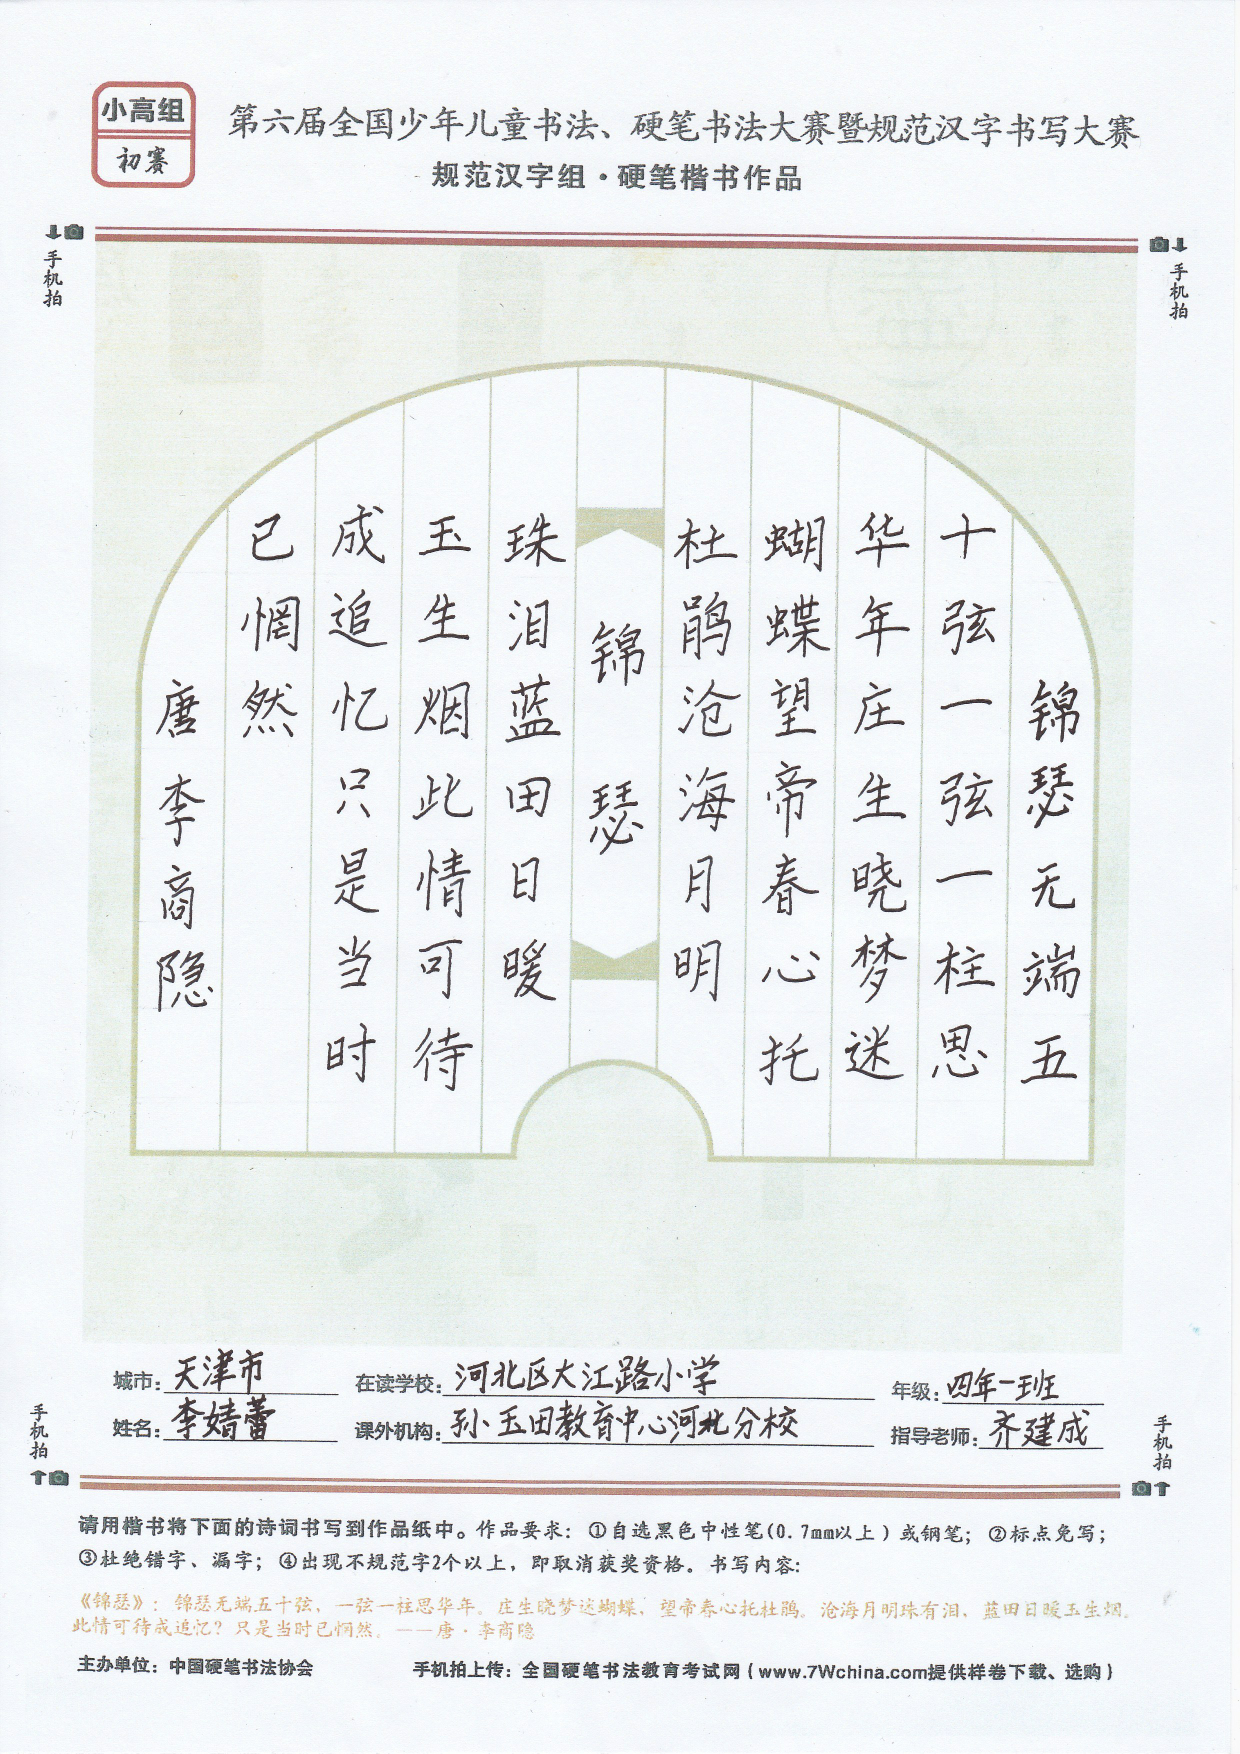 小高组
初赛
第六届全国少年儿童书法、硬笔书法大赛暨规范汉字书写大赛
规范汉字组·硬笔楷书作品
手机拍
手机拍
锦瑟无端五
十弦一弦一柱思
华年庄生晓梦迷
蝴蝶望帝春心托
杜鹃沧海月明
锦瑟
珠泪蓝田日暖
玉生烟此情可待
成追忆只是当时
已惘然
唐李商隐
城市：天津市 在读学校：河北区大江路小学 年级：四年一班
姓名：李婧蕾 课外机构：孙玉田教育中心河北分校 指导老师：齐建成
手机拍
手机拍
请用楷书将下面的诗词书写到作品纸中。作品要求：①自选黑色中性笔(0.7mm以上)或钢笔；②标点免写；
③杜绝错字、漏字；④出现不规范字2个以上，即取消获奖资格。书写内容：
《锦瑟》：锦瑟无端五十弦，一弦一柱思华年。庄生晓梦迷蝴蝶，望帝春心托杜鹃。沧海月明珠有泪，蓝田日暖玉生烟。
此情可待成追忆？只是当时已惘然。——唐·李商隐
主办单位：中国硬笔书法协会 手机拍上传：全国硬笔书法教育考试网(www.7Wchina.com提供样卷下载、选购)